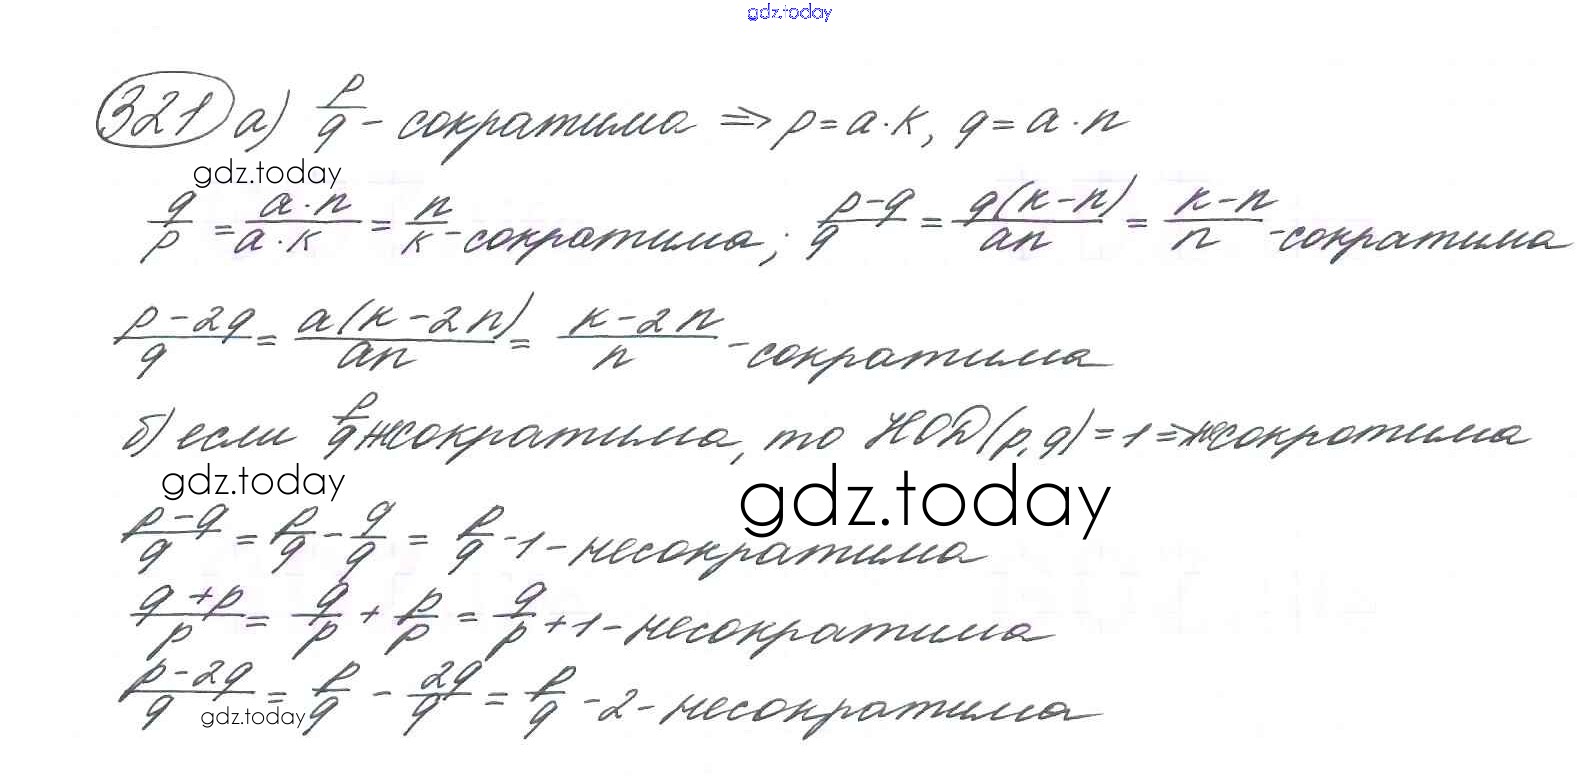 gdz.today
321 а) p/q - сократима => p = a·k, q = a·n
gdz.today
q/p = a·n/a·k = n/k - сократима; p-q/q = q(k-n)/an = k-n/n - сократима
p-2q/q = a(k-2n)/an = k-2n/n - сократима
б) если p/q несократима, то НОД(p,q) = 1 => несократима
gdz.today
gdz.today
p-q/q = p/q - q/q = p/q - 1 - несократима
q+p/p = q/p + p/p = q/p + 1 - несократима
p-2q/q = p/q - 2q/q = p/q - 2 - несократима
gdz.today